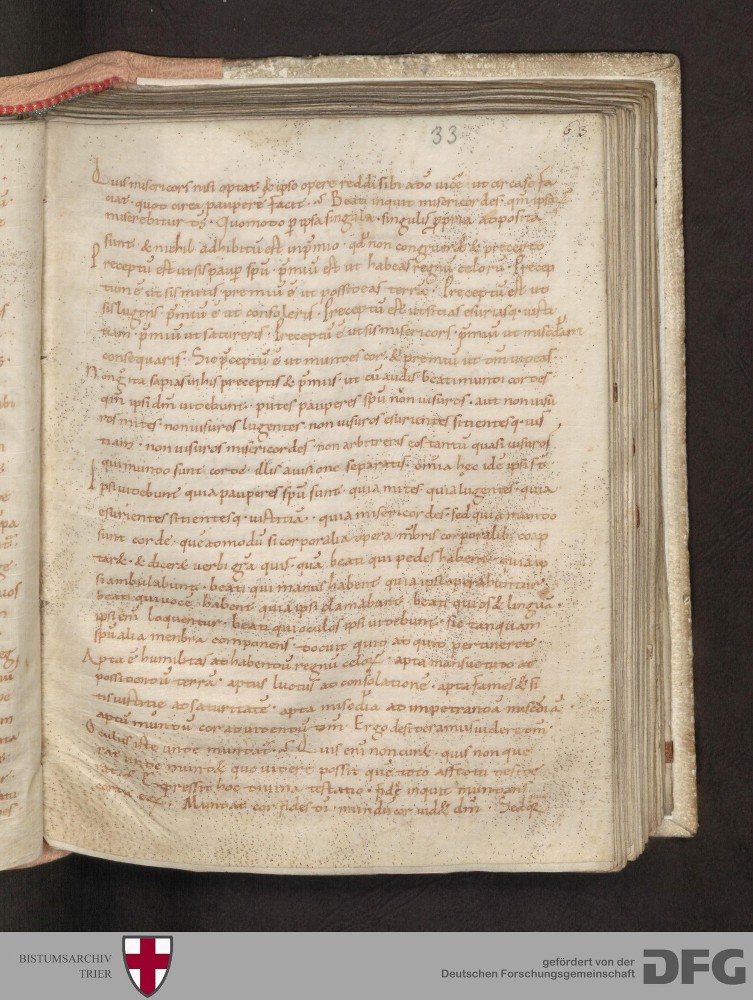 33
63
Quis misericors nisi optat & ipso opere reddi sibi a dō vicē ut
ciat quod circa pauperē facit. Beati inquit misericordes qm̄ ipsis
miserebitur ds̄. Quomodo ꝑ ipsa singula singulis ꝓpria adposita
sunt & nichil adhibitū est in p̄mio qđ non congruer& precepto
Preceptū est ut sis paup spū. p̄miū est ut habeas regnū celorū. Precep
tum ē ut sis mitis premiū ē ut possideas terrā. Preceptū est ut
sis lugens p̄miū ē ut consoleris. Preceptū est ut sitias esuriasq. iusti
tiam. p̄miū ut satureris. Preceptū ē ut sis misericors. p̄miū ut misc̄dam
consequaris. Sic p̄ceptū ē ut mundes cor & premiū ut dm̄ videas.
Non & ita sapias in his preceptis & p̄miis. ut cū audis beati mundi cordes
qm̄ ipsi dm̄ videbunt. putes pauperes spū non visuros. aut non visu
ros mites. non visuros lugentes. non visuros esurientes sitientesq. ius
tiam. non visuros misericordes. non arbitreris eos tantū quasi visuros
qui mundo sunt corde. illis a visione separatis. omnia hoc idē ipsi s̄t
Ipsi videbunt quia pauperes spū sunt. quia mites. quia lugentes. quia
esurientes sitientesq. iustitiā. quia misericordes. sed quia mundo
sunt corde. quēadmodū si corporalia opera mbris corporalib. coap
tar& & dicer& verbi grā quis. quā beati qui pedes habent. quia ip
si ambulabunt. beati qui manus habent quia ipsi operabuntur.
beati qui vocē habent quia ipsi clamabunt. beati qui os & linguā.
ipsi enī loquentur. beati qui oculos ipsi videbunt. sic tanquam
spūalia menbra componens. docuit quid ad quid pertineret.
Apta ē humilitas ad habendū regnū celoꝝ. apta mansuetudo ad
possidendū terrā. aptus luctus ad consolationē. apta fames & si
tis iustitie ad saturitatē. apta misc̄dia ad impetrandā misc̄diā.
aptū mundū cor ad videndū dm̄. Ergo desideramus videre dm̄.
Oculus iste unde mundat. Quis enī non cur&. quis non que
rat unde mund& quo videre possit quē toto affectu
Expressit hoc divina testatio. fide inquit mundans
corda eoꝝ. Mundat cor fides dī. mundū cor vid& dm̄. Sed q
BISTUMSARCHIV
TRIER
gefördert von der
Deutschen Forschungsgemeinschaft
DFG